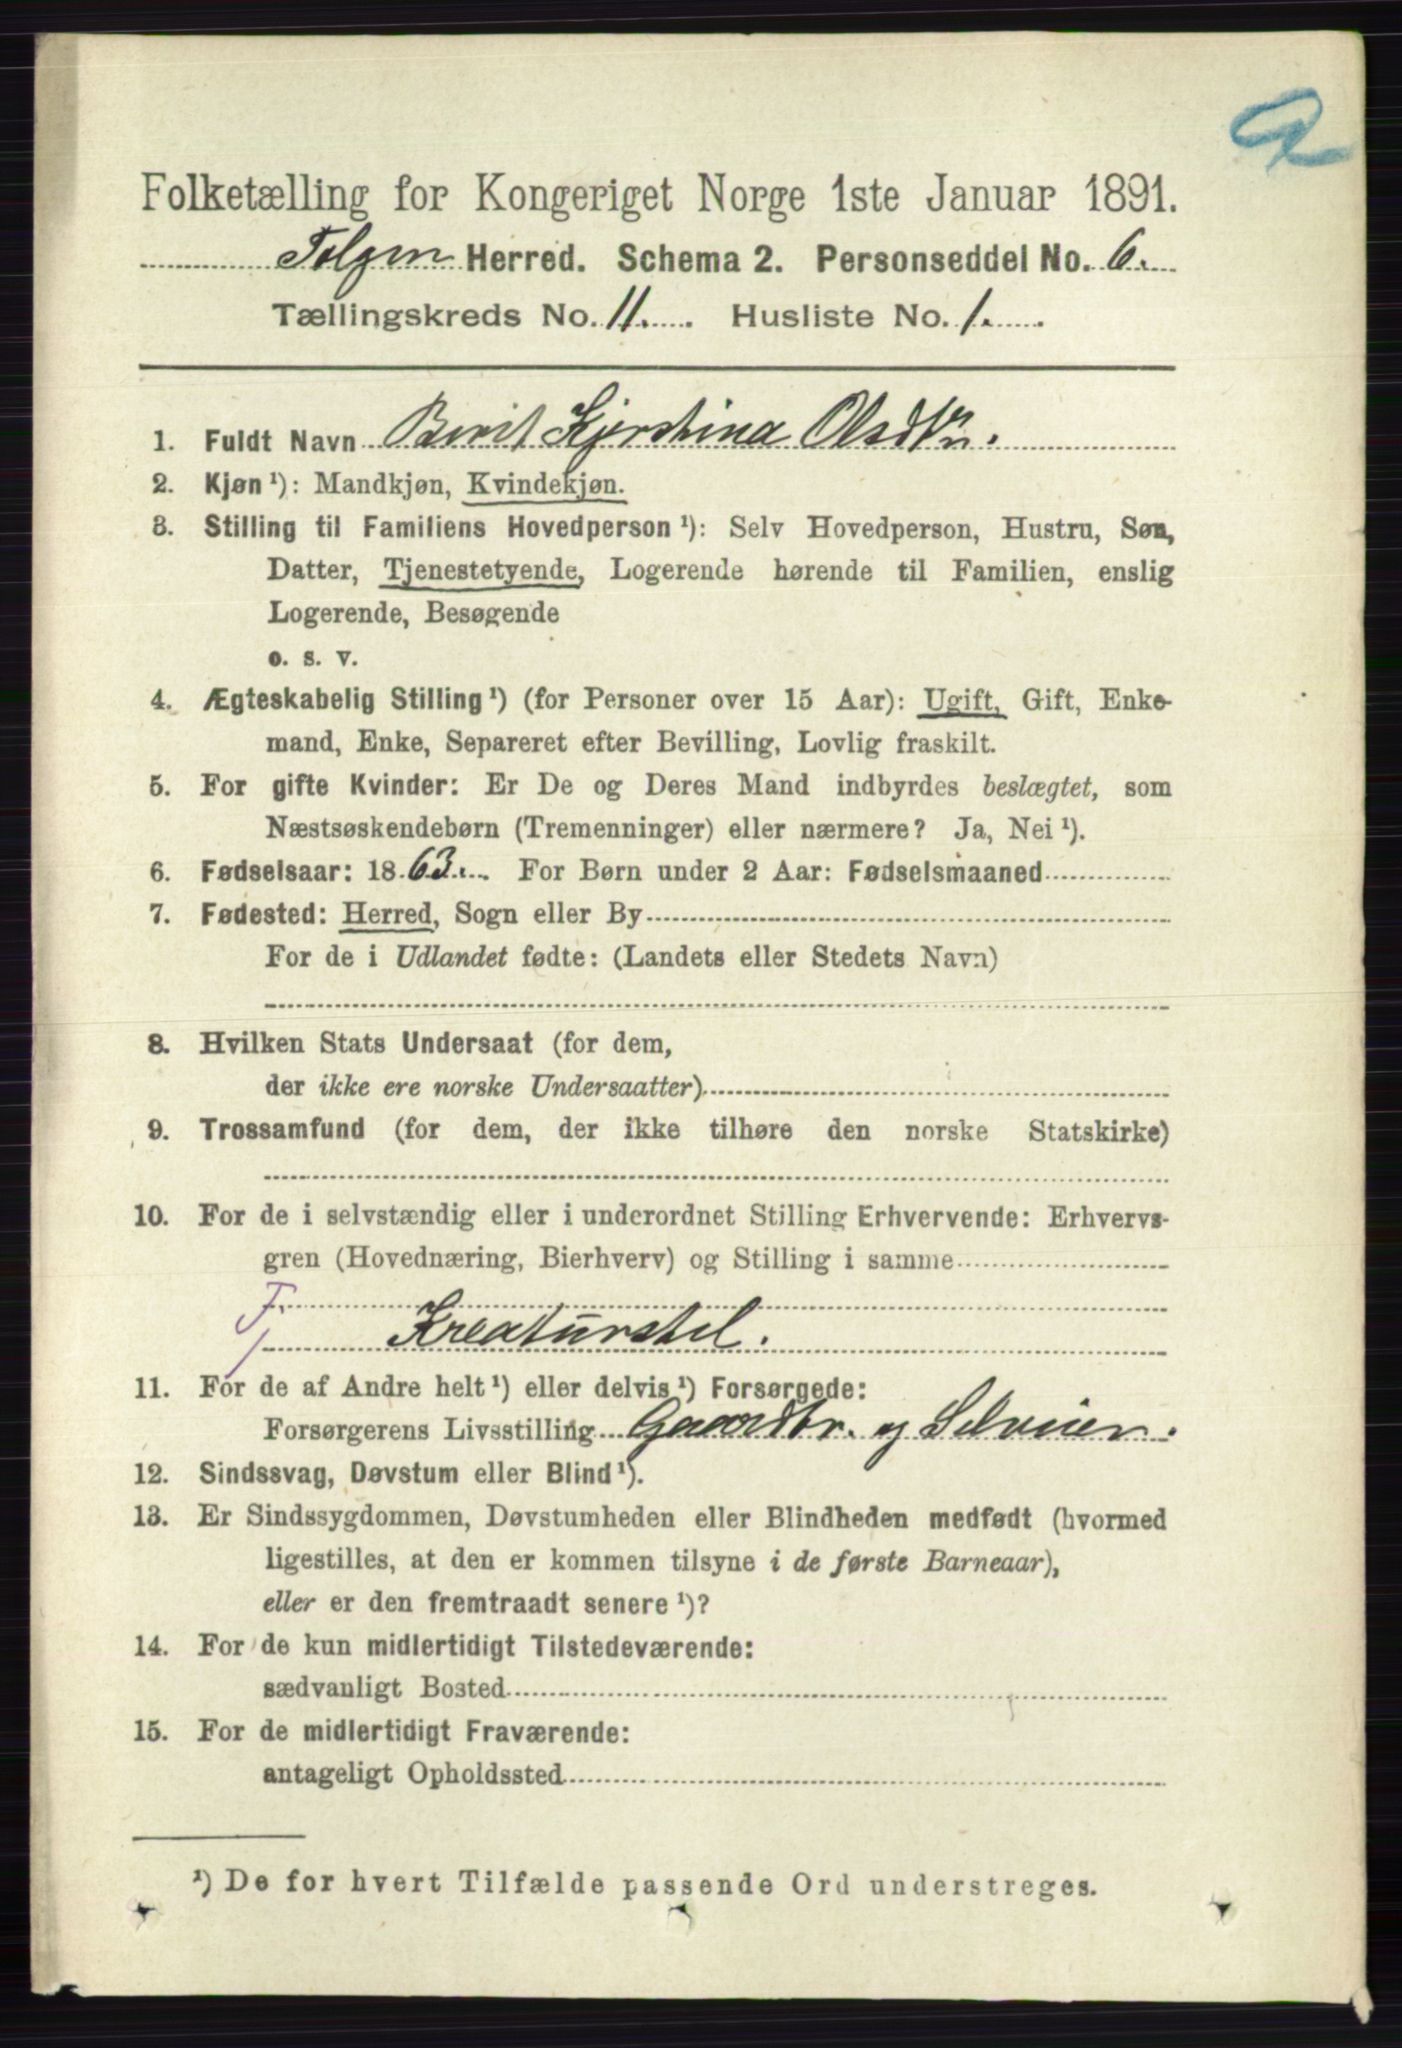 Folketælling for Kongeriget Norge 1ste Januar 1891.
Tolgen Herred. Schema 2. Personseddel No. 6.
Tællingskreds No. 11. Husliste No. 1.
1. Fuldt Navn Berit Kjerstina Olsdtr.
2. Kjøn ¹): Mandkjøn, Kvindekjøn.
3. Stilling til Familiens Hovedperson ¹): Selv Hovedperson, Hustru, Søn,
Datter, Tjenestetyende, Logerende hørende til Familien, enslig
Logerende, Besøgende
o. s. v.
4. Ægteskabelig Stilling ¹) (for Personer over 15 Aar): Ugift, Gift, Enke-
mand, Enke, Separeret efter Bevilling, Lovlig fraskilt.
5. For gifte Kvinder: Er De og Deres Mand indbyrdes beslægtet, som
Næstsøskendebørn (Tremenninger) eller nærmere? Ja, Nei ¹).
6. Fødselsaar: 1863. For Børn under 2 Aar: Fødselsmaaned
7. Fødested: Herred, Sogn eller By
For de i Udlandet fødte: (Landets eller Stedets Navn)
8. Hvilken Stats Undersaat (for dem,
der ikke ere norske Undersaatter)
9. Trossamfund (for dem, der ikke tilhøre den norske Statskirke)
10. For de i selvstændig eller i underordnet Stilling Erhvervende: Erhvervs-
gren (Hovednæring, Bierhverv) og Stilling i samme
Kreaturstel.
11. For de af Andre helt ¹) eller delvis ¹) Forsørgede:
Forsørgerens Livsstilling Gaardbr. og Selveier.
12. Sindssvag, Døvstum eller Blind ¹).
13. Er Sindssygdommen, Døvstumheden eller Blindheden medfødt (hvormed
ligestilles, at den er kommen tilsyne i de første Barneaar),
eller er den fremtraadt senere ¹)?
14. For de kun midlertidigt Tilstedeværende:
sædvanligt Bosted
15. For de midlertidigt Fraværende:
antageligt Opholdssted
¹) De for hvert Tilfælde passende Ord understreges.